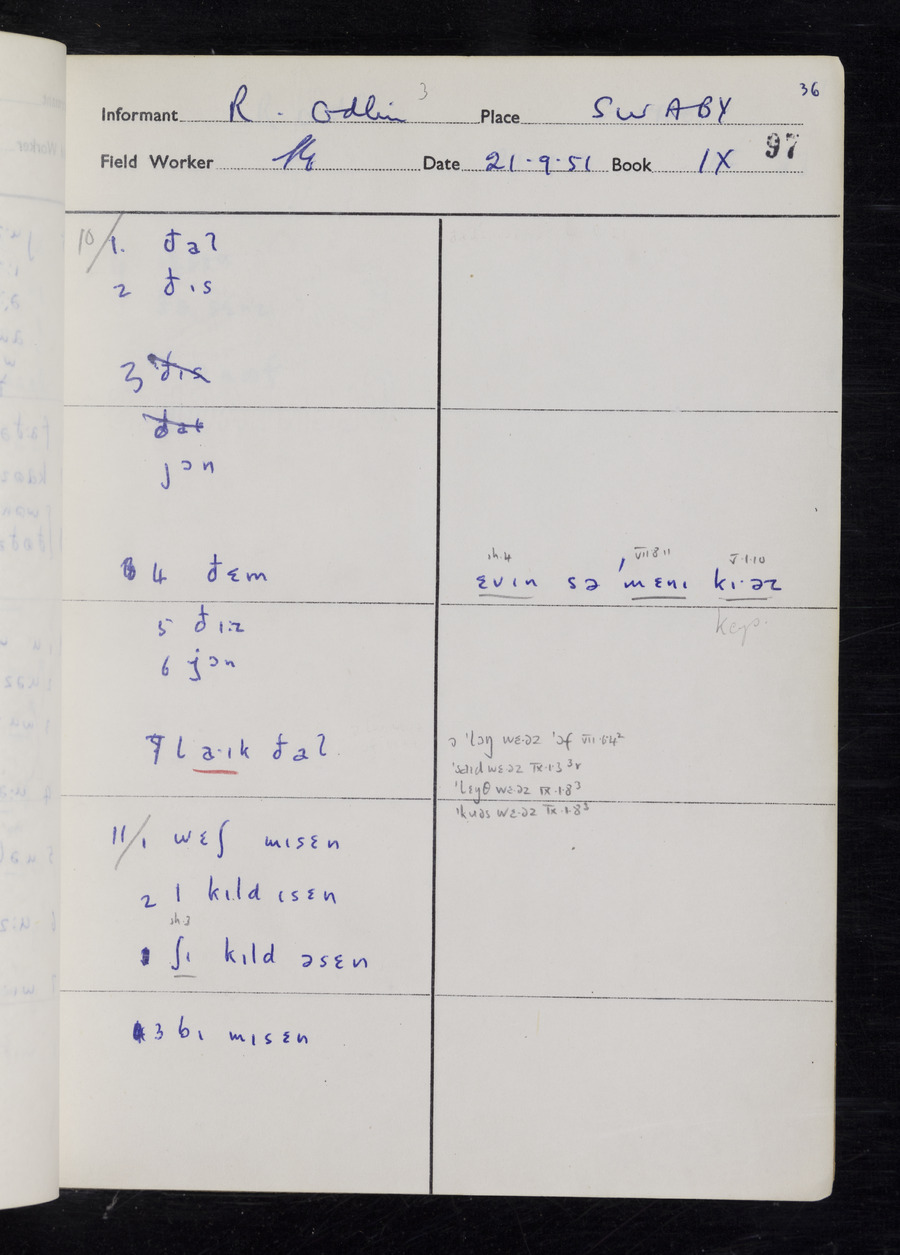 36
Informant R. Odlin 3 Place SWABY
Field Worker Date 21.9.51 Book IX 97
10/ 1. ðaʔ
2 ðɪs
3 ðɪs
ðat
jɔn
4 ðɛm
5 ðɪ:z
6 jɔn
7 laˑɪk ðaʔ
11/ 1 wɛʃ mɪsɛn
2 ɪ kɪld ɪsɛn
sh.3
ʃɪ kɪld əsɛn
3 bɪ mɪsɛn
sh.4 VII·8·11 V·1·10
ɛvɪn sə ˈmɛnɪ kɪˑəz
keys.
ə ˈlɔŋ wɛˑəz ˈɔf VII·6·4²
ˈsaɪd wɛˑəz IX·1·3 ³r
wɛˑəz IX·1·8³
ˈkuəs wɛˑəz IX·1·8³